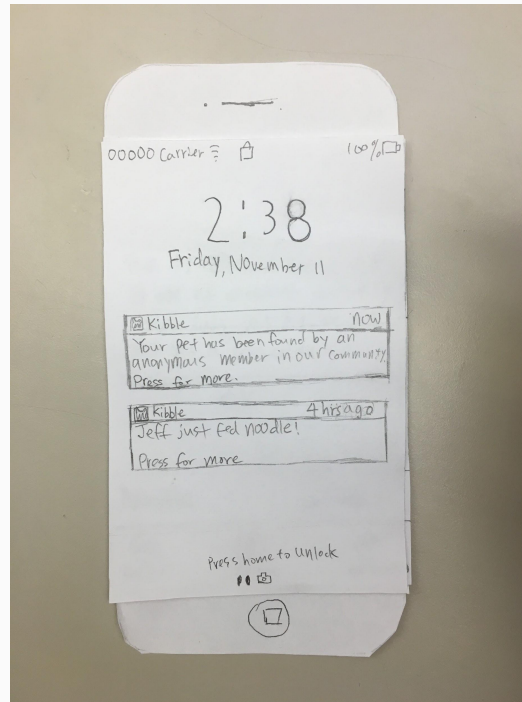 00000 Carrier 100%
2:38
Friday, November 11
Kibble now
Your pet has been found by an
anonymous member in our community.
Press for more.
Kibble 4 hrs ago
Jeff just fed noodle!
Press for more
Press home to Unlock